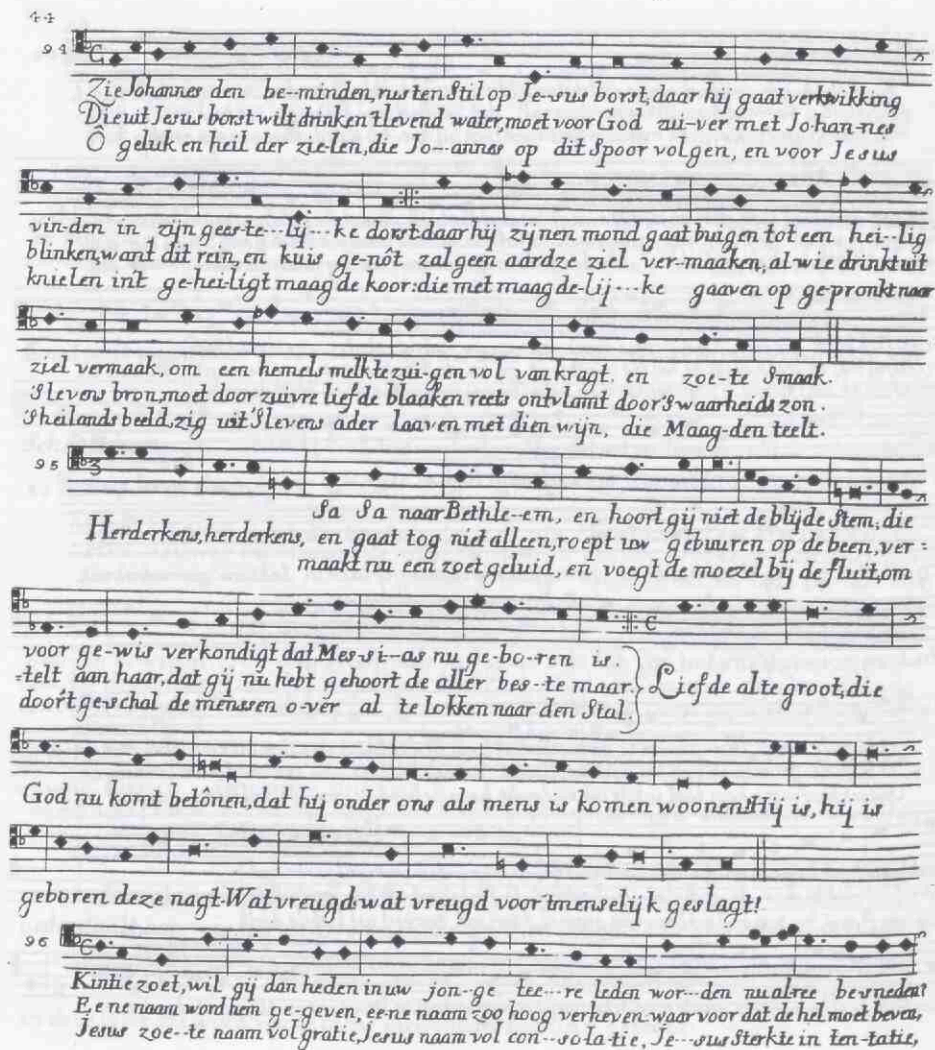 44
94
Zie Johannes den be--minden, rusten stil op Je--sus borst, daar hij gaat verkwikking
Die uit Jesus borst wilt drinken t levend water, moet voor God zui-ver met Jo-han-nes
Ô geluk en heil der zie-len, die Jo--annes op dit spoor volgen, en voor Jesus
vin-den in zijn gees-te---lij---ke dorst daar hij zijnen mond gaat buigen tot een hei--lig
blinken, want dit rein, en kuis ge-nôt zal geen aardze ziel ver-maaken, al wie drinkt uit
knielen in't ge-hei-ligt maag de koor: die met maag de-lij---ke gaaven op ge-pronkt naar
ziel vermaak, om een hemels melk te zui-gen vol van kragt. en zoe-te smaak.
s levens bron, moet door zuivre liefde blaaken reets ontvlamt door s waarheids zon.
s heilands beeld, zig uit s levens ader laaven met dien wijn, die Maag-den teelt.
95
Sa Sa naar Bethle--em, en hoort gij niet de blijde stem, die
Herderkens, herderkens, en gaat tog niet alleen, roept uw gebuuren op de been, ver=
maakt nu een zoet geluid, en voegt de moezel bij de fluit, om
voor ge-wis verkondigt dat Mes-si--as nu ge-bo--ren is.
=telt aan haar, dat gij nu hebt gehoort de aller bes--te maar. Liefde al te groot, die
door't geschal de menssen o-ver al te lokken naar den stal.
God nu komt betônen, dat hij onder ons als mens is komen woonen! Hij is, hij is
geboren deze nagt. Wat vreugd wat vreugd voor t menselijk geslagt!
96
Kintie zoet, wil gij dan heden in uw jon--ge tee---re leden wor---den nu al ree besneden?
Ee ne naam word hem ge-geven, ee-ne naam zoo hoog verheven waar voor dat de hel moet beven,
Jesus zoe--te naam vol gratie, Jesus naam vol con---so-la-tie, Je---sus sterkte in ten-tatie,